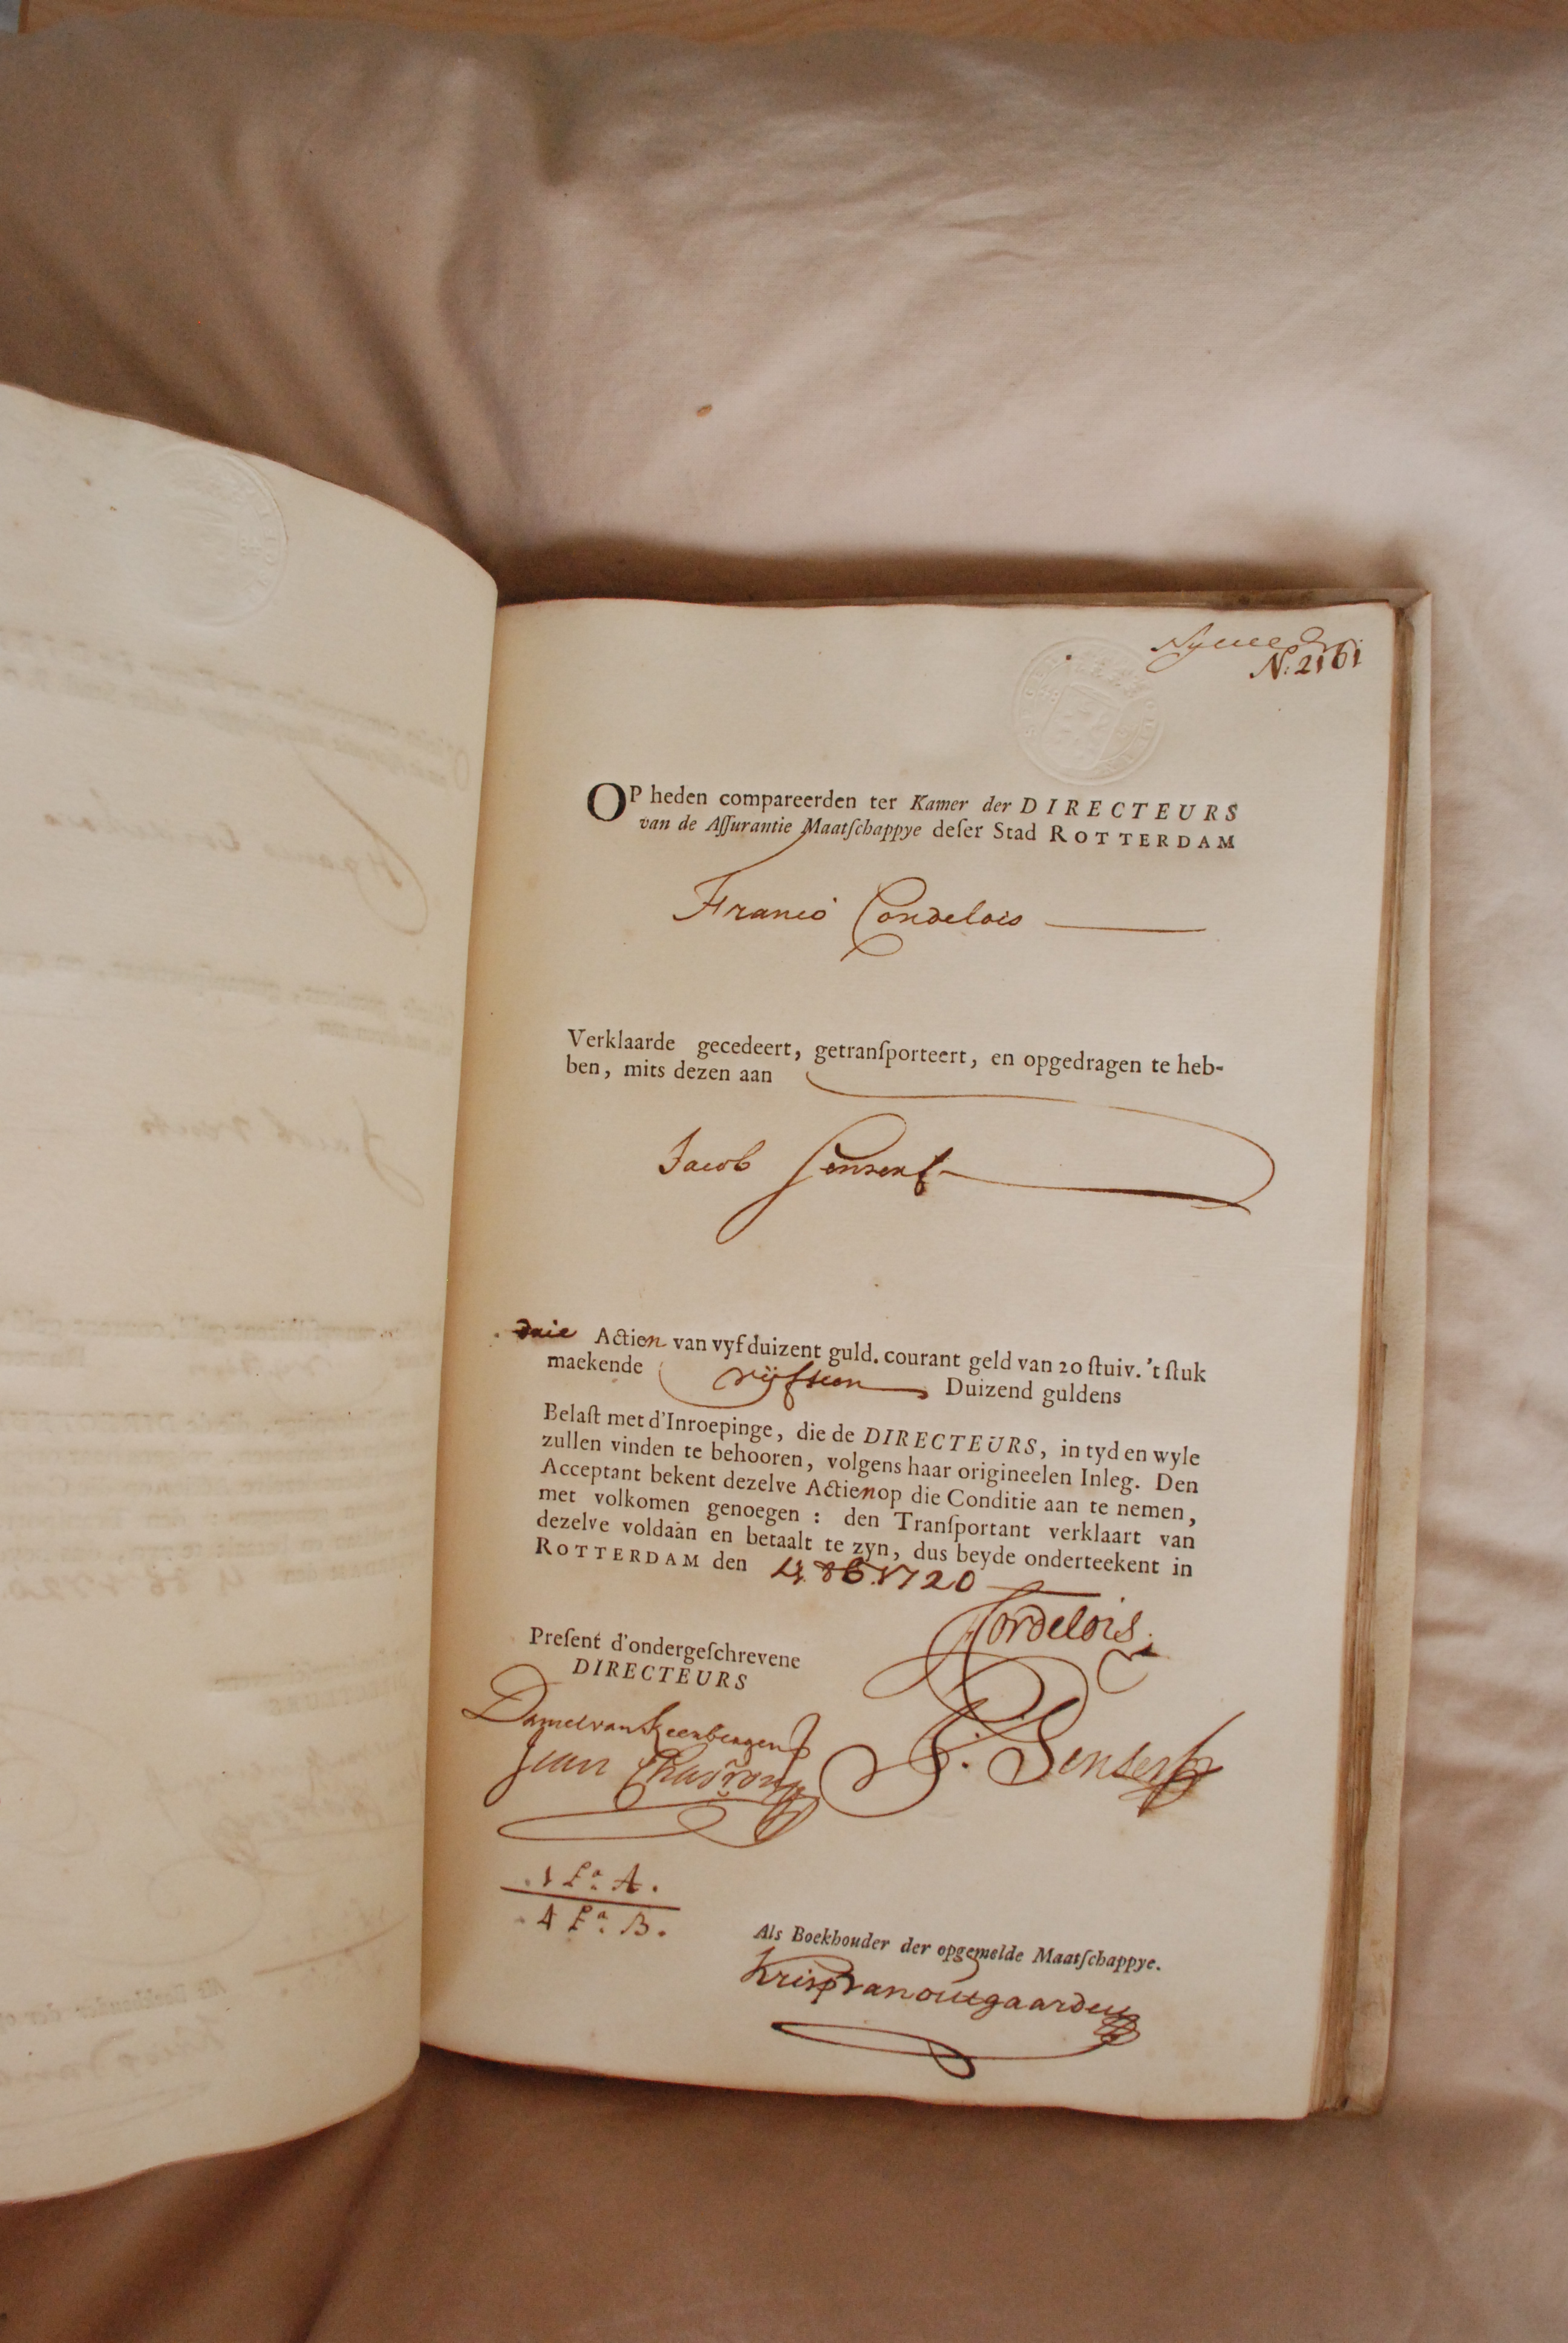 N: 2161
OP heden compareerden ter Kamer der DIRECTEURS
van de Aſſurantie Maatſchappye deſer Stad ROTTERDAM
Francó Cordelois
Verklaarde gecedeert, getranſporteert, en opgedragen te heb-
ben, mits dezen aan
Jacob Senserf
drie Actien van vyf duizent guld. courant geld van 20 ſtuiv. 't ſtuk
maekende vijftien Duizend guldens
Belaſt met d'Inroepinge, die de DIRECTEURS, in tyd en wyle
zullen vinden te behooren, volgens haar origineelen Inleg. Den
Acceptant bekent dezelve Actien op die Conditie aan te nemen,
met volkomen genoegen : den Tranſportant verklaart van
dezelve voldaan en betaalt te zyn, dus beyde onderteekent in
ROTTERDAM den 4. 8b. 1720
Cordelois.
Preſent d'ondergeſchrevene
DIRECTEURS
Daniel van Keerbergen
J. Senserf
Jean Chaviron
1 Fo. A.
4 Fo. B.
Als Boekhouder der opgemelde Maatſchappye.
Krisp van outgaarden